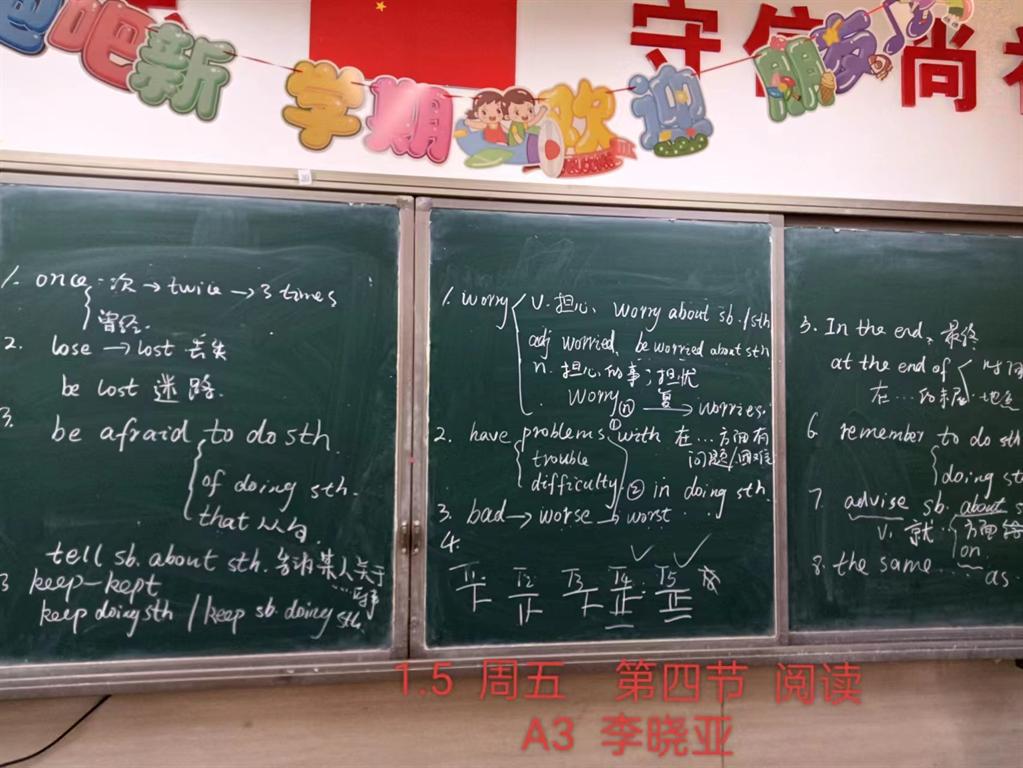 吧新学期欢迎朋友
守信 尚
1. once 一次 → twice → 3 times
曾经.
2. lose → lost 丢失
be lost 迷路.
3. be afraid to do sth
of doing sth.
that 从句.
tell sb. about sth. 告诉某人关于
…时事
3 keep-kept
keep doing sth / keep sb. doing sth
1. worry v. 担心, worry about sb./sth
adj worried, be worried about sth
n. 担心的事；担忧
worry ⓝ 复 → worries.
2. have problems ① with 在…方面有
trouble 问题/困难
difficulty ② in doing sth.
3. bad → worse → worst
4.
T1 T2 T3 T4 T5
5. In the end, 最终
at the end of 时间
在…的末尾 地点
6 remember to do sth
doing sth
7. advise sb. about s
v. 就 方面给
on
8. the same … as
1.5 周五 第四节 阅读
A3 李晓亚